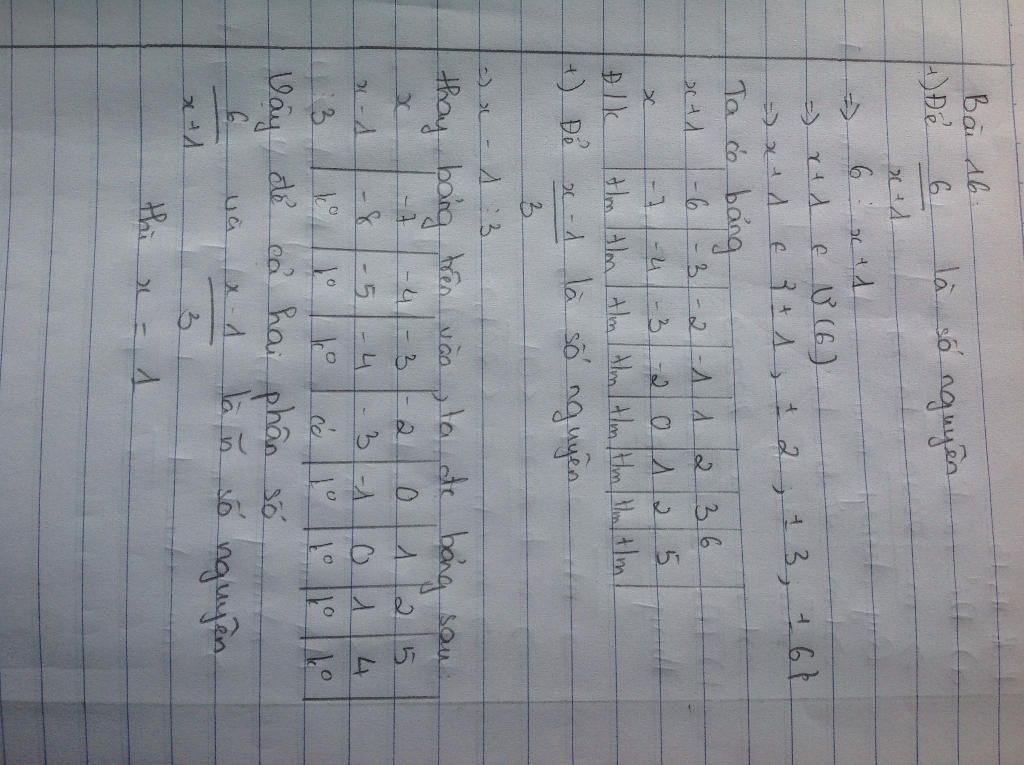 Bài 16.
+) Để 6/x+1 là số nguyên
=> 6 ⋮ x+1
=> x+1 ∈ Ư(6)
=> x+1 ∈ {±1, ±2, ±3, ±6}
Ta có bảng
x+1 -6 -3 -2 -1 1 2 3 6
x -7 -4 -3 -2 0 1 2 5
Đ/k t/m t/m t/m t/m t/m t/m t/m t/m
+) Để x-1/3 là số nguyên
=> x - 1 ⋮ 3
Thay bảng trên vào, ta đc bảng sau
x -7 -4 -3 -2 0 1 2 5
x-1 -8 -5 -4 -3 -1 0 1 4
⋮3 k° k° k° có k° k° k° k°
Vậy để cả hai phân số
6/x+1 và x-1/3 là số nguyên
thì x = 1